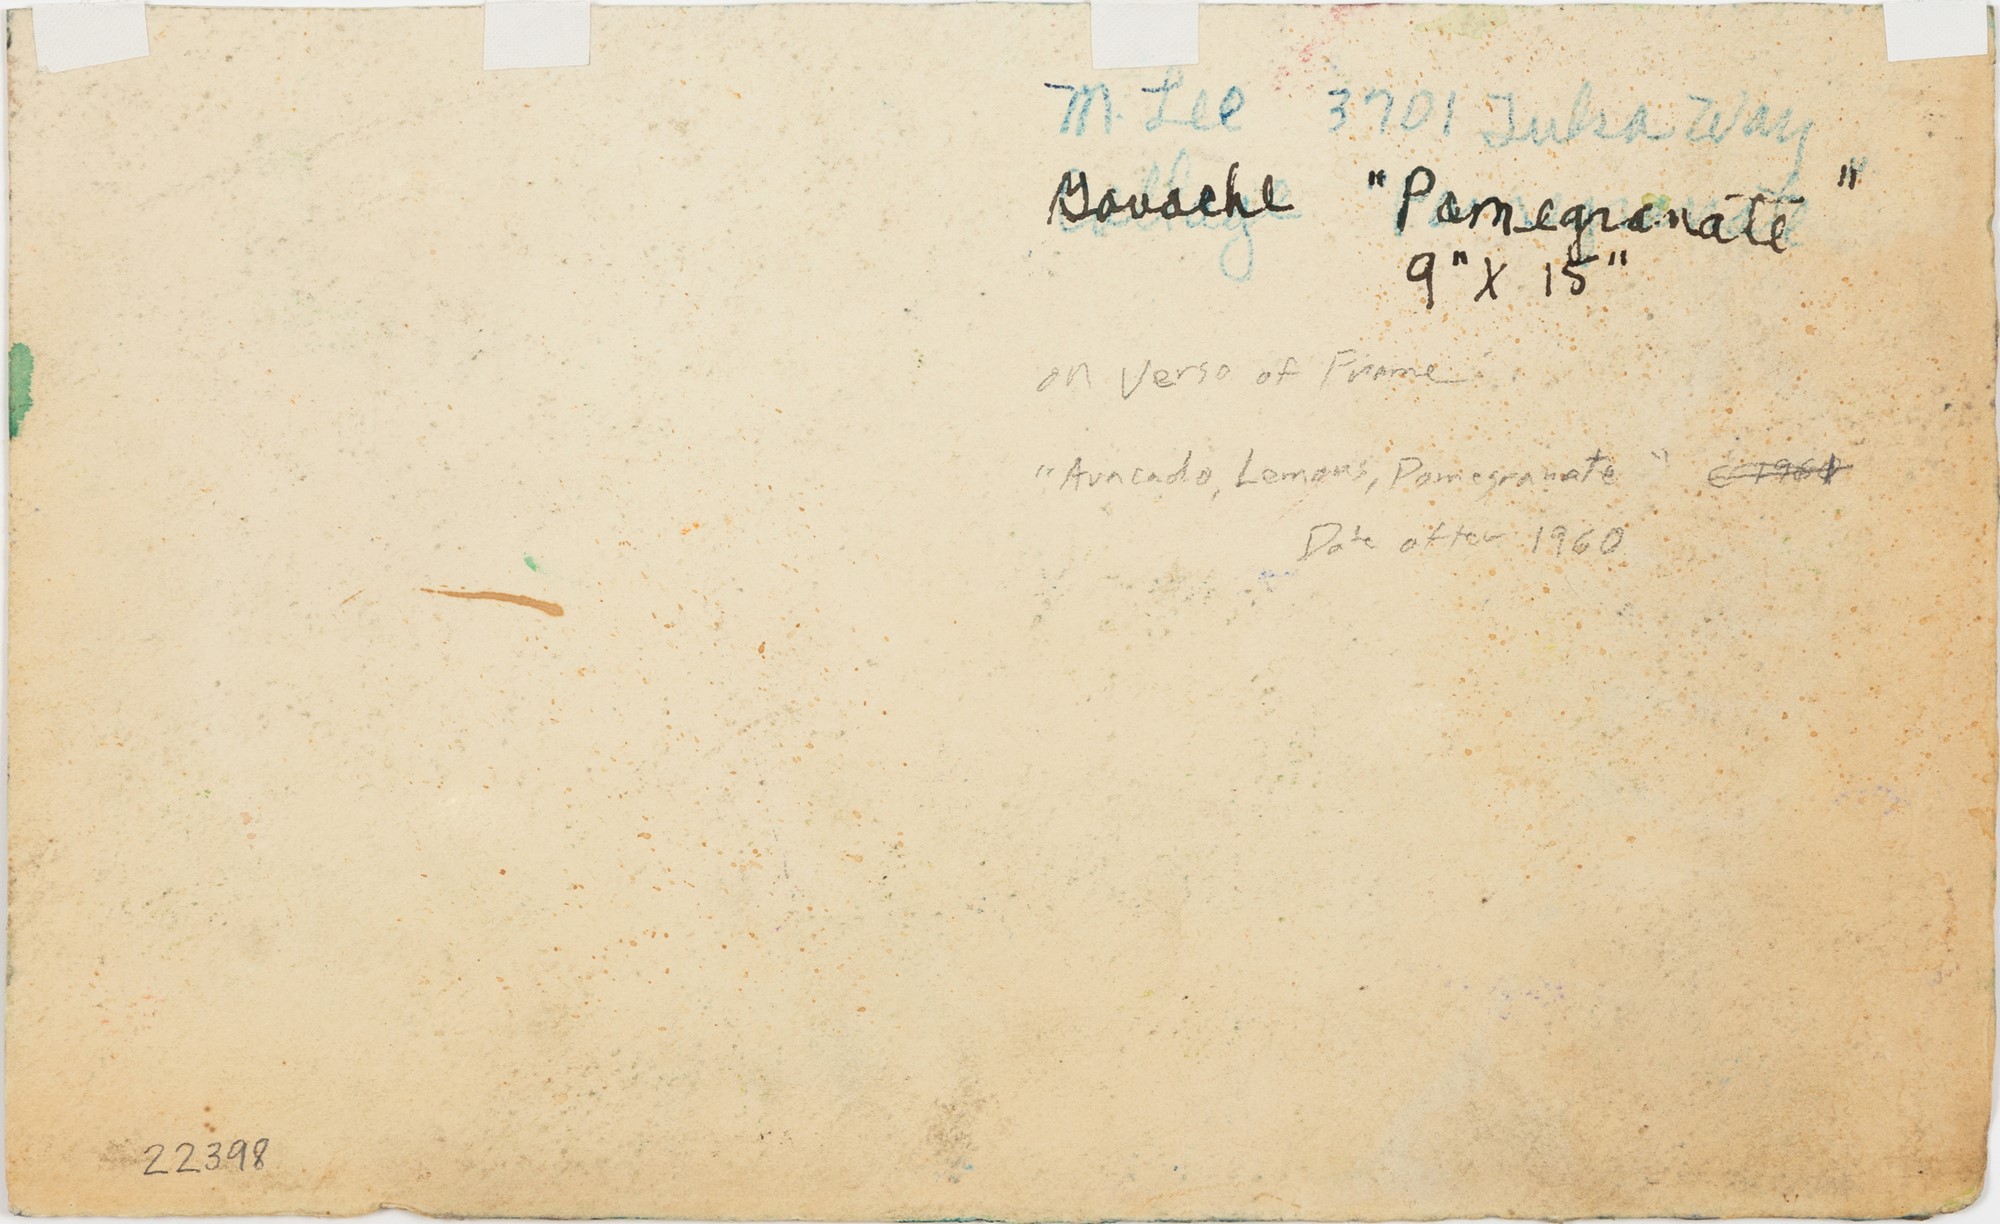 M. Lee 3701 Tulsa Way
Gouache "Pomegranate"
9" X 15"
on Verso of Frame
"Avacado, Lemons, Pomegranate"
Date after 1960
22398